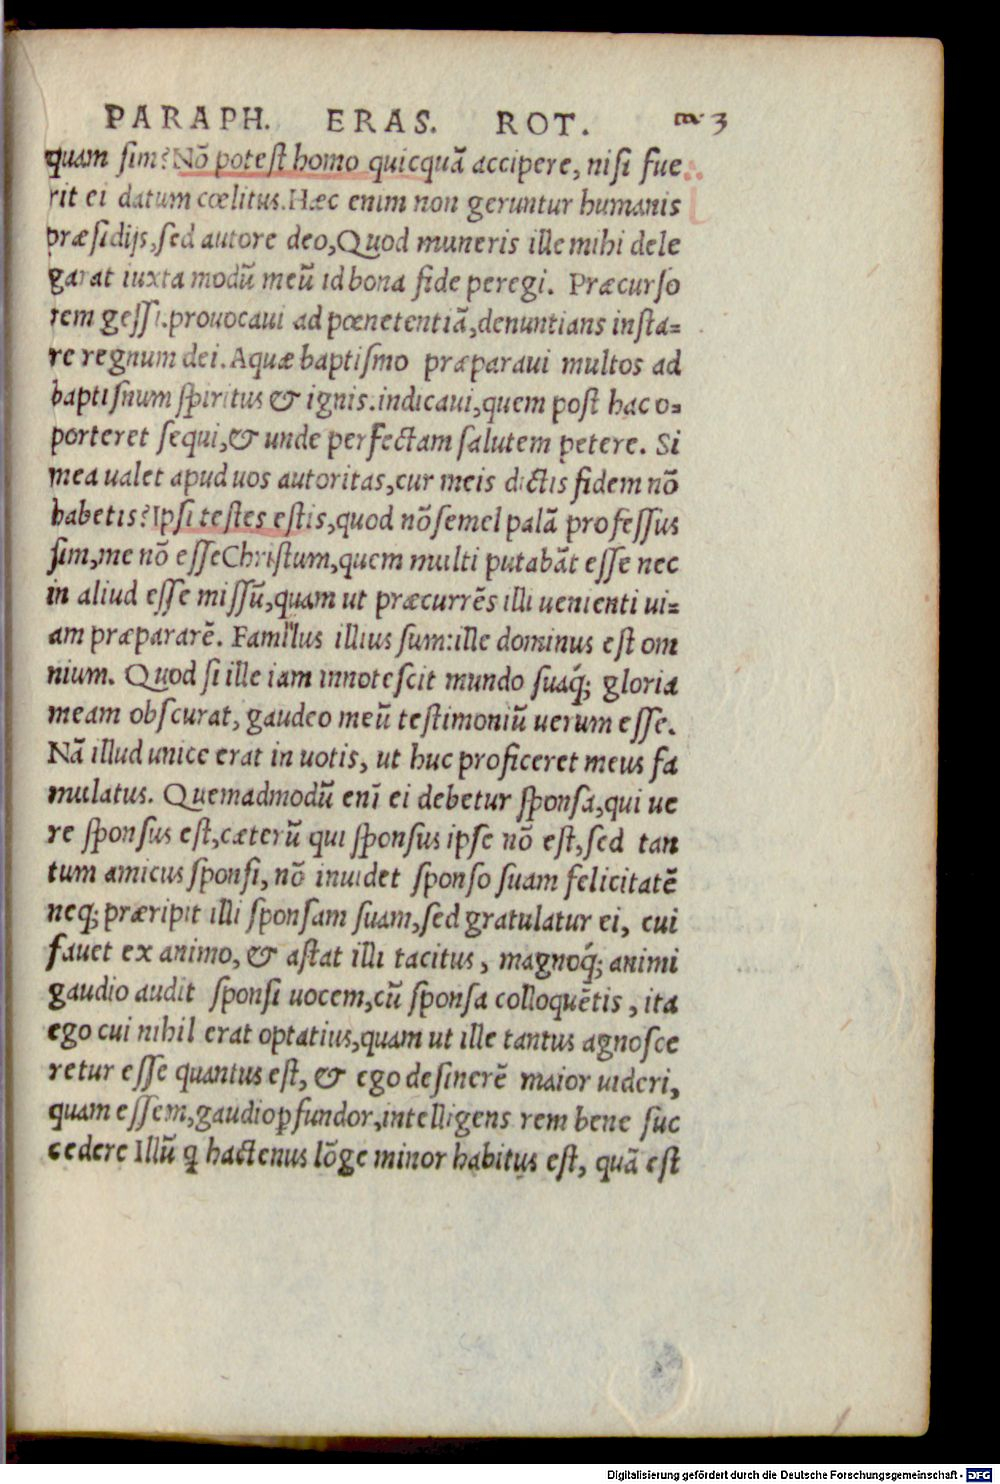 PARAPH. ERAS. ROT.
quam sim? Nō potest homo quicquā accipere, nisi fue
rit ei datum cœlitus. Hæc enim non geruntur humanis
præsidijs, sed autore deo, Quod muneris ille mihi dele
garat iuxta modū meū id bona fide peregi. Præcurso
rem gessi. prouocaui ad pœnetentiā, denuntians insta=
re regnum dei. Aquæ baptismo præparaui multos ad
baptisnum spiritus & ignis. indicaui, quem post hac o=
porteret sequi, & unde perfectam salutem petere. Si
mea ualet apud uos autoritas, cur meis dictis fidem nō
habetis? Ipsi testes estis, quod nō semel palā professus
sim, me nō esse Christum, quem multi putabāt esse nec
in aliud esse missū, quam ut præcurrēs illi uenienti ui=
am præpararē. Famulus illius sum: ille dominus est om
nium. Quod si ille iam innotescit mundo suaq́; gloria
meam obscurat, gaudeo meū testimoniū uerum esse.
Nā illud unice erat in uotis, ut huc proficeret meus fa
mulatus. Quemadmodū enī ei debetur sponsa, qui ue
re sponsus est, cæterū qui sponsus ipse nō est, sed tan
tum amicus sponsi, nō inuidet sponso suam felicitatē
neq; præripit illi sponsam suam, sed gratulatur ei, cui
fauet ex animo, & astat illi tacitus, magnoq́; animi
gaudio audit sponsi uocem, cū sponsa colloquētis, ita
ego cui nihil erat optatius, quam ut ille tantus agnosce
retur esse quantus est, & ego desinerē maior uideri,
quam essem, gaudio ꝑfundor, intelligens rem bene suc
cedere Illū q hactenus lōge minor habitus est, quā est
Digitalisierung gefördert durch die Deutsche Forschungsgemeinschaft - DFG